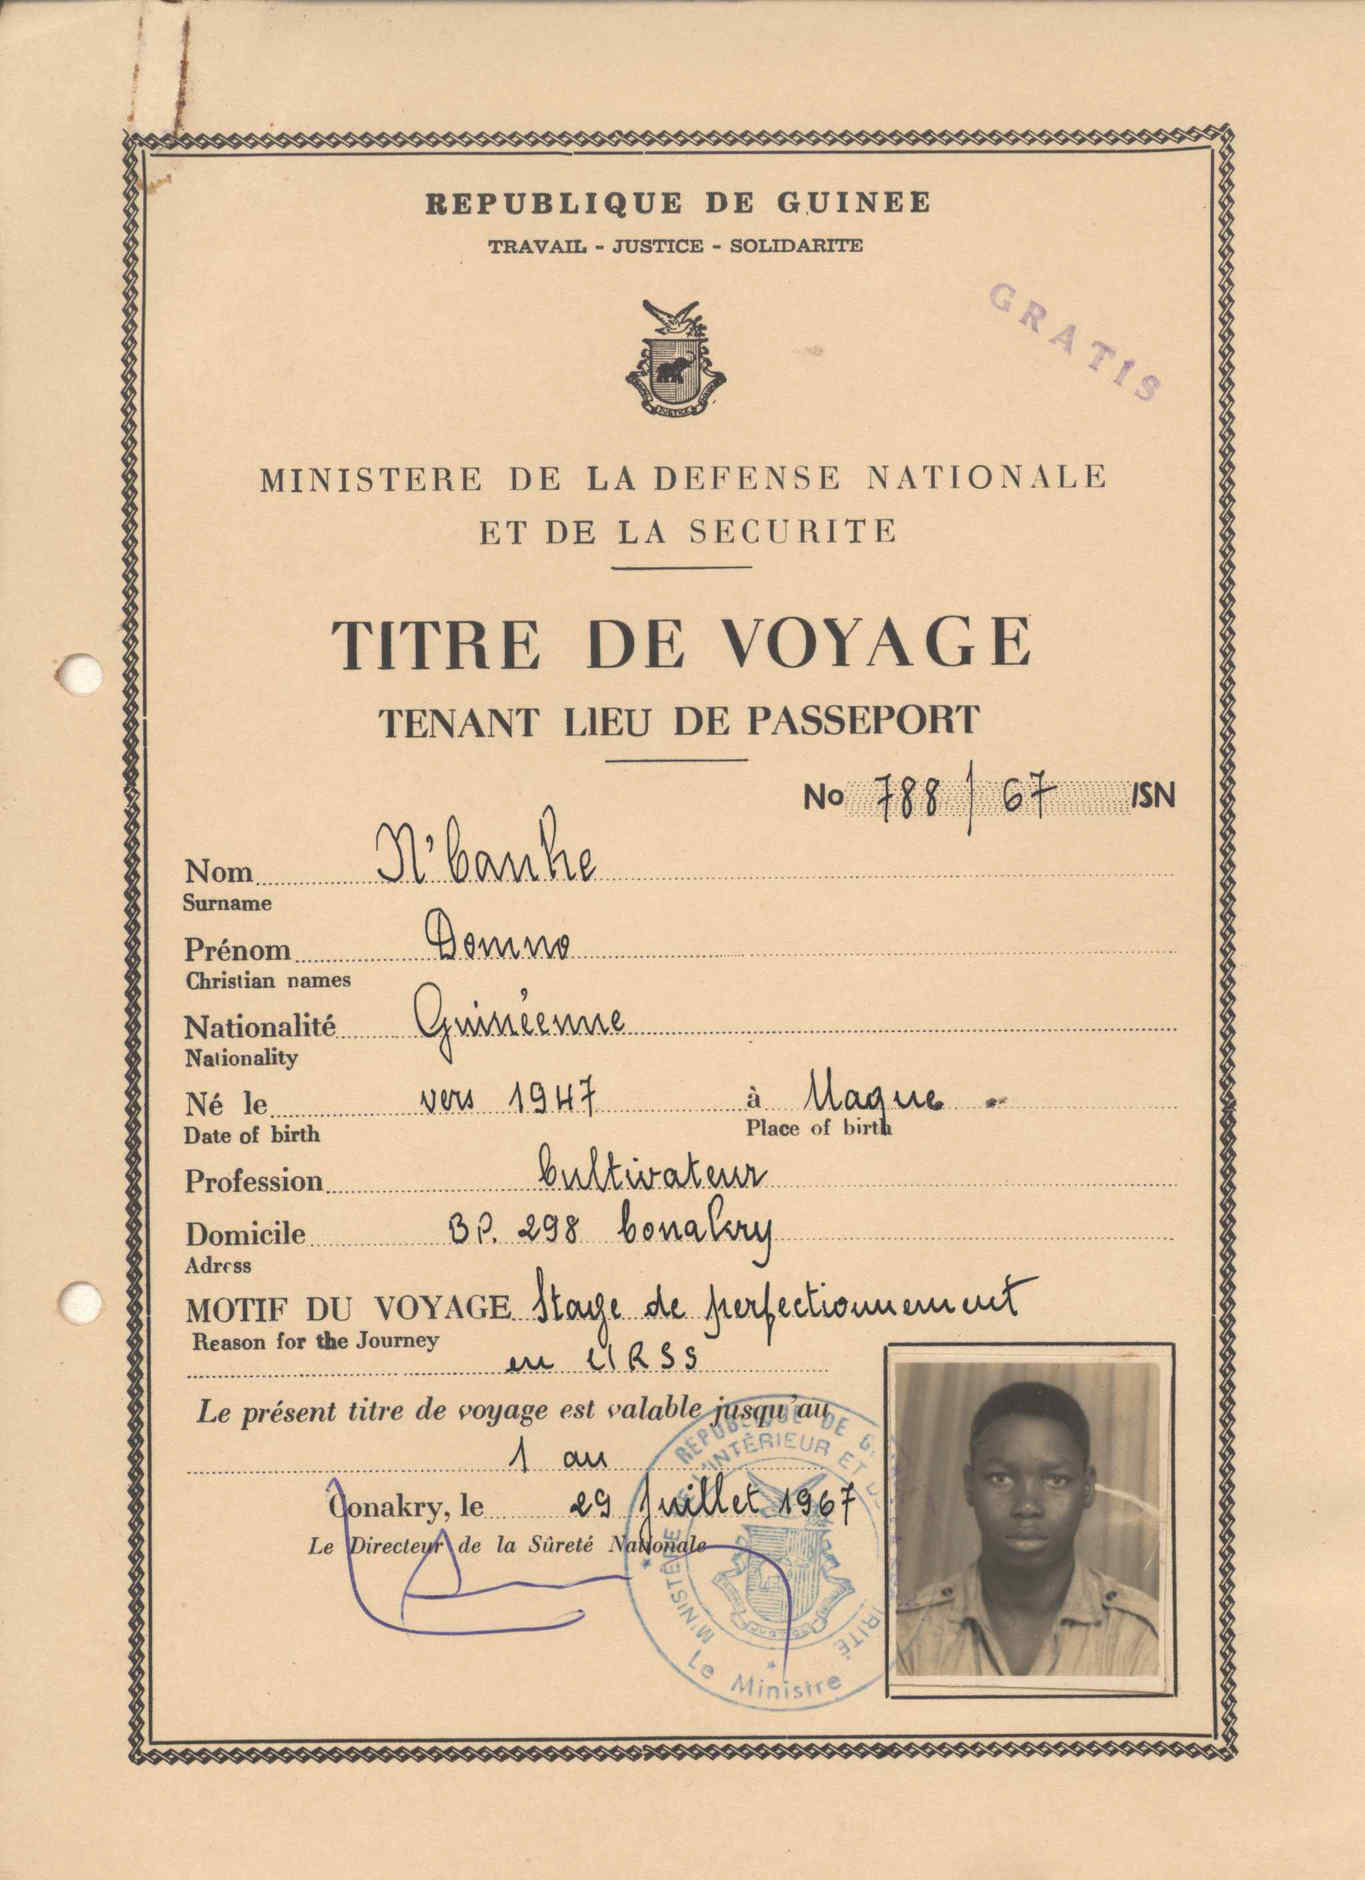 REPUBLIQUE DE GUINEE
TRAVAIL - JUSTICE - SOLIDARITE
GRATIS
MINISTERE DE LA DEFENSE NATIONALE
ET DE LA SECURITE
TITRE DE VOYAGE
TENANT LIEU DE PASSEPORT
No 788/67 /SN
Nom N'Canhe
Surname
Prénom Domno
Christian names
Nationalité Guinéenne
Nationality
Né le vers 1947 à Uaque
Date of birth Place of birth
Profession Cultivateur
Domicile BP. 298 Conakry
Adress
MOTIF DU VOYAGE Stage de perfectionnement
Reason for the Journey
en URSS
Le présent titre de voyage est valable jusqu'au
1 an
Conakry, le 29 Juillet 1967
Le Directeur de la Sûreté Nationale
REPUBLIQUE DE
MINISTÈRE DE L'INTÉRIEUR ET
Le Ministre